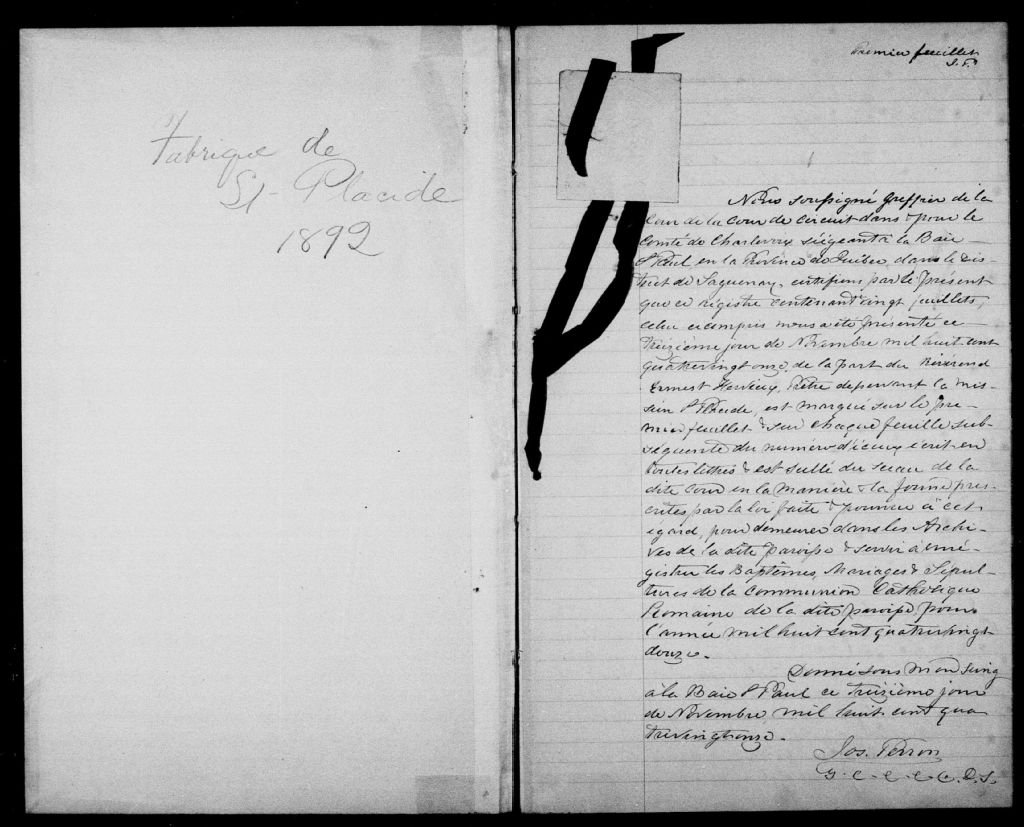 Fabrique de
St Placide
1892
Premier feuillet
J. P.
Nous soussigné Greffier de la
Cour de la Cour de Circuit dans & pour le
Comté de Charlevoix siégeant à la Baie
St Paul, en la Province de Québec dans le Dis-
trict de Saguenay, certifions par le présent
que ce régistre contenant vingt feuillets,
celui ci compris nous a été présenté ce
treizième jour de Novembre mil huit cent
quatrevingt onze, de la part du Révérend
Ernest Hervieux, Prêtre desservant la mis-
sion St Placide, est marqué sur le pre-
mier feuillet & sur chaque feuille sub-
séquente du numéro d'iceux écrit en
toutes lettres & est scellé du sceau de la
dite Cour en la manière & la forme pres-
crites par la loi faite & pourvue à cet
égard, pour demeurer dans les Archi-
ves de la dite paroisse & servir à enré-
gistrer les Baptêmes, Mariages & Sépul-
tures de la Communion Catholique
Romaine de la dite paroisse, pour
l'année mil huit cent quatrevingt
douze.
Donné sous mon seing
à la Baie St Paul ce treizième jour
de Novembre mil huit cent qua
trevingt onze.
Jos. Perron
G. C. C. C. C. D. S.